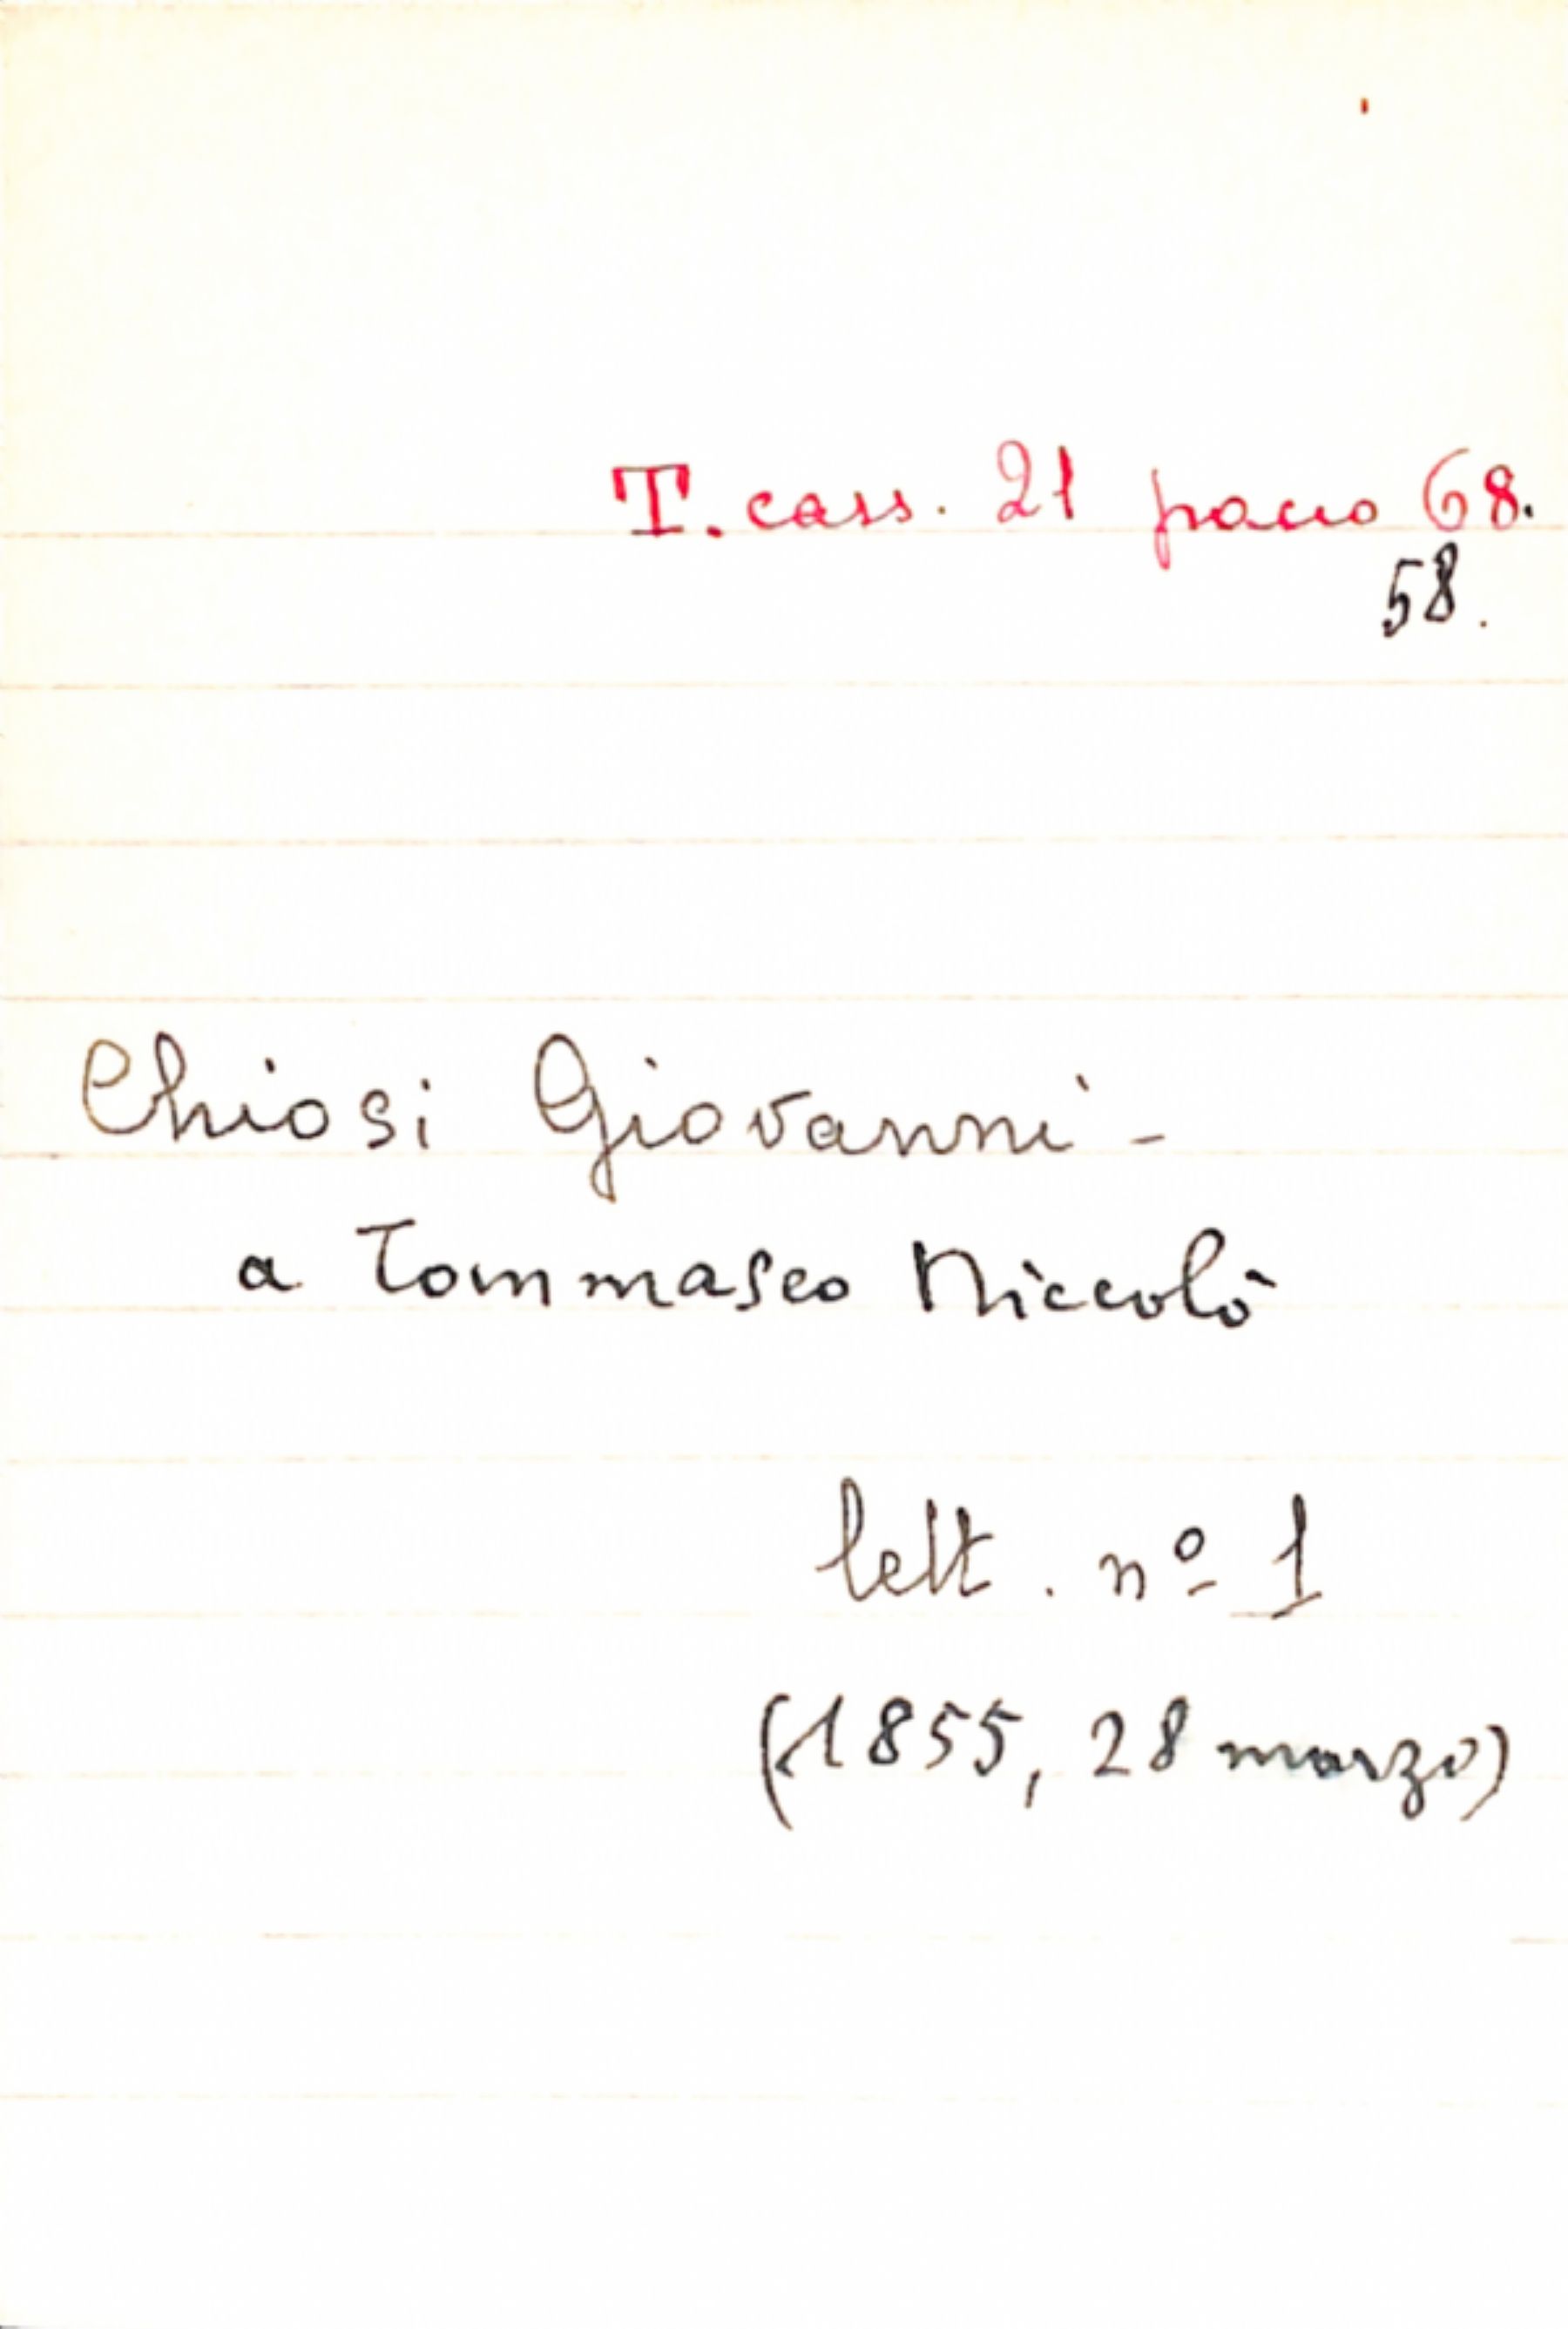 T. cass. 21 pacco 68.
58.
Chiosi Giovanni -
a Tommaseo Niccolò
lett. nº 1
(1855, 28 marzo)